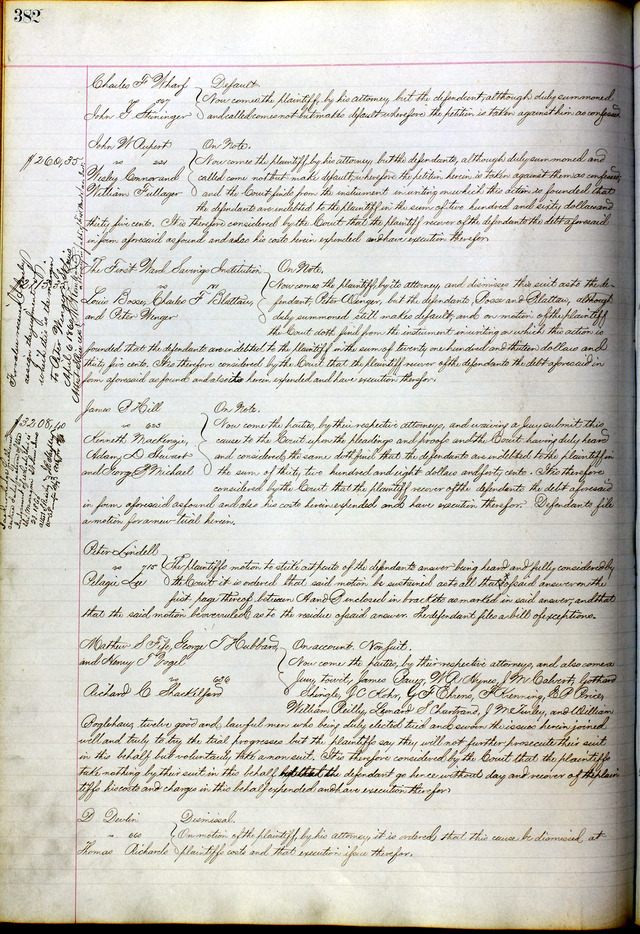 382
Charles F Wharf Default
Now comes the plaintiff, by his attorney, but the defendant, although duly summoned
John F Steininger and called comes not but makes default wherefore the petition is taken against him as confessed
John W On Note.
$260,35
Now comes the plaintiff by his attorney, but the defendants, although duly summoned and
Wesley Connor and called come not but make default wherefore the petition herein is taken against them as confessed
William Fullager and the Court finds from the instrument in writing on which this action is founded that
the defendants are indebted to the plaintiff in the sum of two hundred and sixty dollars and
thirty five cents. It is therefore considered by the Court that the plaintiff recover of the defendants the debt aforesaid
in form aforesaid as found and also his costs herein expended and have execution therefor.
The First Ward Savings Institution On Note.
Now comes the plaintiff, by its attorney, and dismisses this suit as to the de-
Louis Bosse, Charles F Blattau, fendant Peter Wenger, but the defendants, Bosse and Blattau, although
and Peter Wenger duly summoned still make default and on motion of the plaintiff
the Court doth find from the instrument in writing on which this action is
founded that the defendants are indebted to the plaintiff in the sum of twenty one hundred and thirteen dollars and
thirty five cents. It is therefore considered by the Court that the plaintiff recover of the defendants the debt aforesaid in
form aforesaid as found and also its costs herein expended and have execution therefor.
James P Hill On Note.
$3208,40
Now come the parties, by their respective attorneys, and waiving a Jury submit this
Kenneth MacKenzie, cause to the Court upon the pleadings and proofs and the Court having duly heard
Adam D Stewart and considered the same doth find that the defendants are indebted to the plaintiff in
and George P Michael the sum of thirty two hundred and eight dollars and forty cents. It is therefore
considered by the Court that the plaintiff recover of the defendants the debt aforesaid
in form aforesaid as found and also his costs herein expended and have execution therefor. Defendants file
a motion for a new trial herein.
Peter Lindell
715 The plaintiffs motion to strike out parts of the defendants answer being heard and fully considered by
Pelagie Lee the Court it is ordered that said motion be sustained as to all that of said answer on the
first page thereof between A and B enclosed in brackets as marked in said answer, and that
that the said motion be overruled as to the residue of said answer. The defendant files a bill of exceptions.
Mathew S Fife, George T Hubbard, On account. Nonsuit.
and Henry T Vogel Now come the parties, by their respective attorneys, and also comes a
636 Jury, towit, James Pavy, W R Hynes, J M Calvert, Gothard
Richard C Shackelford Shingle, J C Lohr, G F Ehrens, F Henning, E P Price,
William Reilly, Leonard S Chartrand, J McKinley, and William
Poglehaus, twelve good and lawful men who being duly elected tried and sworn the issues herein joined
well and truly to try the trial progresses but the plaintiffs say they will not further prosecute their suit
in this behalf but voluntarily take a nonsuit. It is therefore considered by the Court that the plaintiffs
take nothing by their suit in this behalf that the defendant go hence without day and recover of the plain
tiffs his costs and charges in this behalf expended and have execution therefor.
D Devlin Dismissal.
660 On motion of the plaintiff, by his attorney, it is ordered that this cause be dismissed at
Thomas Richards plaintiffs costs and that execution issue therefor.